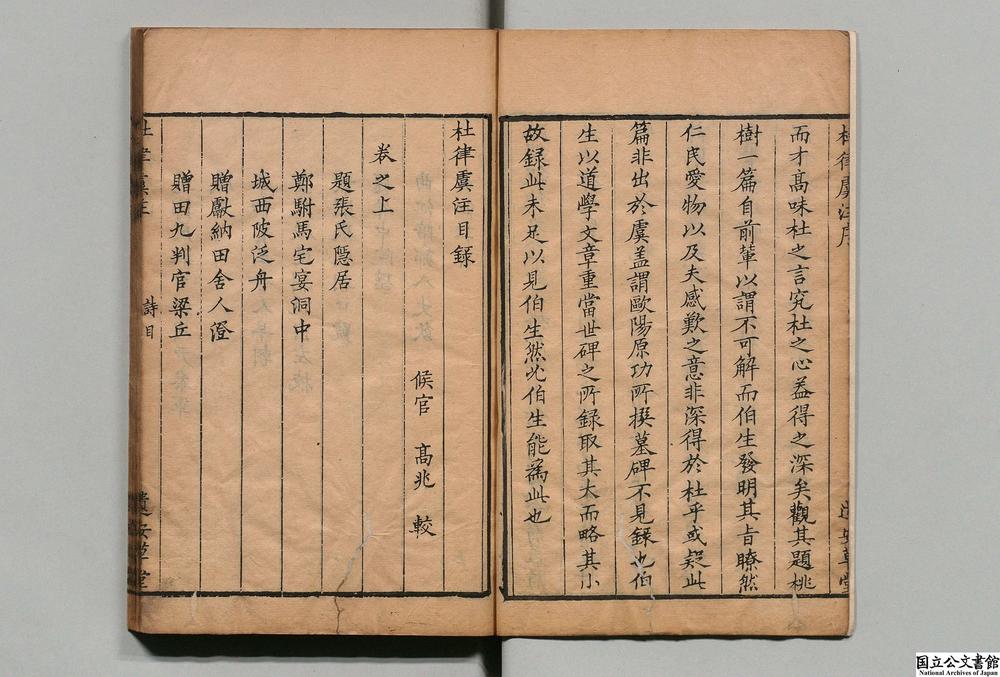 杜律虞注序
而才高味杜之言究杜之心益得之深矣觀其題桃
樹一篇自前輩以謂不可解而伯生發明其旨瞭然
仁民愛物以及夫感歎之意非深得於杜乎或疑此
篇非出於虞盖謂歐陽原功所撰墓碑不見録也伯
生以道學文章重當世碑之所録取其大而略其小
故録此未足以見伯生然必伯生能為此也
杜律虞注目録
候官 高兆 較
卷之上
題張氏隱居
鄭駙馬宅宴洞中
城西陂泛舟
贈獻納田舍人澄
贈田九判官梁丘
杜律虞注
詩目
遺安草堂
国立公文書館
National Archives of Japan